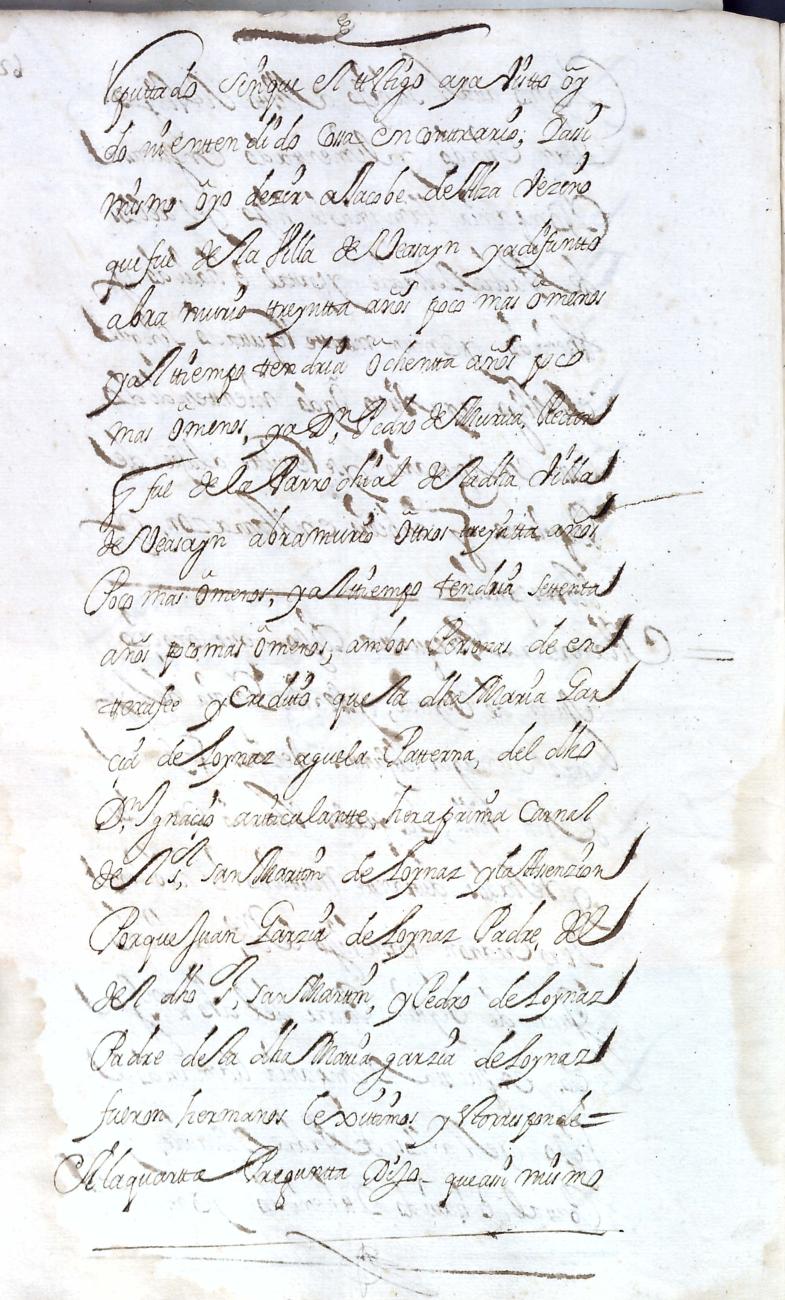 reputtado sinque el ttestigo aya visto oy
do ni enttendido cossa encontrario; Passi
mismo oyo dezir a Jacobe de Alza vezino
que fue de la Villa de Veasayn ya difuntto
abra murio ttreyntta años poco mas o menos
y al tiempo ttendria ochentta años poco
mas o menos, y a Dn Pedro de Murua, Rector
q fue de la Parrochial de la dha Villa
de Veasayn abra murio ottros treyntta años
Poco mas o menos, y al tiempo tendria settenta
años poco mas o menos, ambos Personas de en
ttera fee y credito que la dha Maria Gar
cia de Loynaz aguela Patterna, del dho
Dn Ignacio articulantte, hera prima carnal
de el sr San Martin de Loynaz y la Asenzion
Porque Juan Garzia de Loynaz Padre
del dho sr San Martin, y Pedro de Loynaz
Padre de la dha Maria garzia de Loynaz
fueron hermanos lexitimos y Rorresponde=
A la quartta Preguntta Dijo- que asi mismo